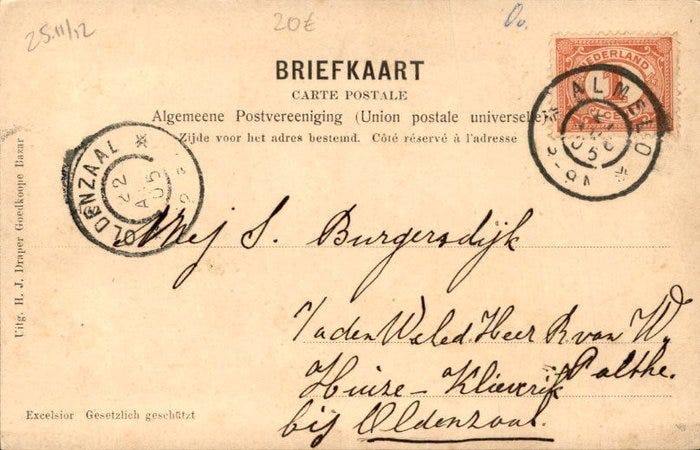 25.11/12
20€
NEDERLAND
BRIEFKAART
CARTE POSTALE
Algemeene Postvereeniging (Union postale universelle)
Zijde voor het adres bestemd. Côté réservé à l'adresse
ALMELO
OLDENZAAL
22
05
Mej S. Burgersdijk
den Weled Heer R. van W.
Palthe.
Huize - Klieverik
bij Oldenzaal.
Uitg. H. J. Draper Goedkoope Bazar
Excelsior Gesetzlich geschützt